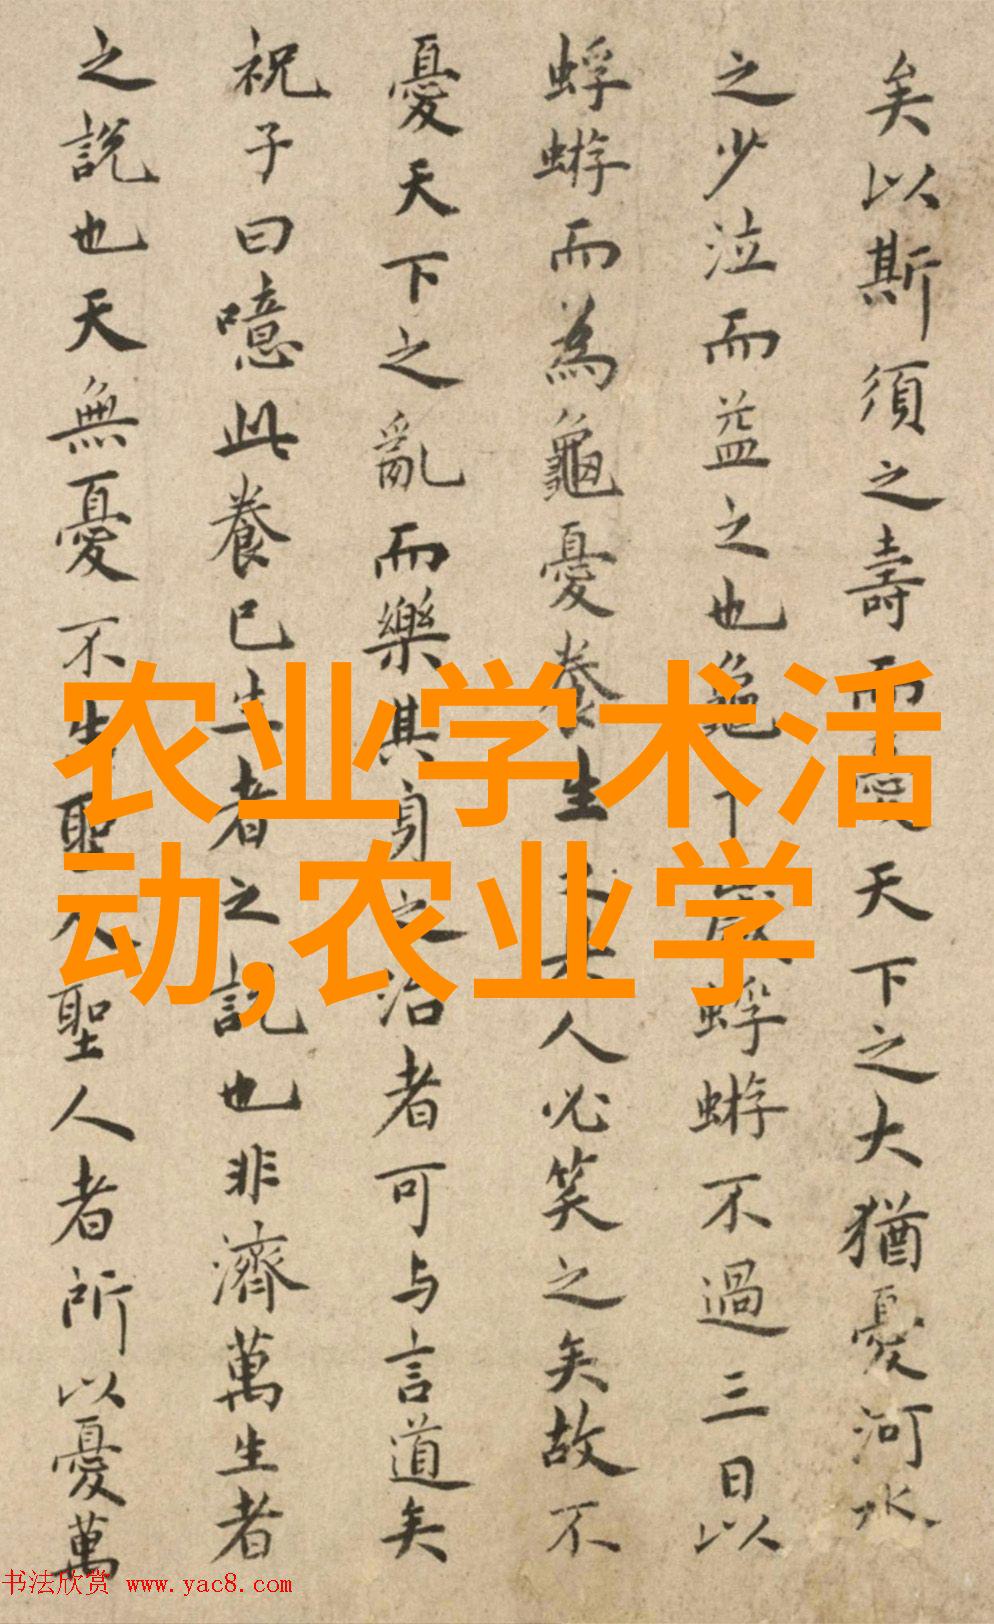 矣以斯須之壽而憂天下之大猶憂河水
之少泣而益之也龜千歲蜉蝣不過三日以
蜉蝣而為龜憂養生之具人必笑之矣故不
憂天下之亂而樂其身之治者可与言道矣
祝子曰噫此養已生者之說也非濟萬生者
之說也天無憂不生聖人聖人者所以憂萬
农业学术活
动,农业学
书法欣赏 www.yac8.com